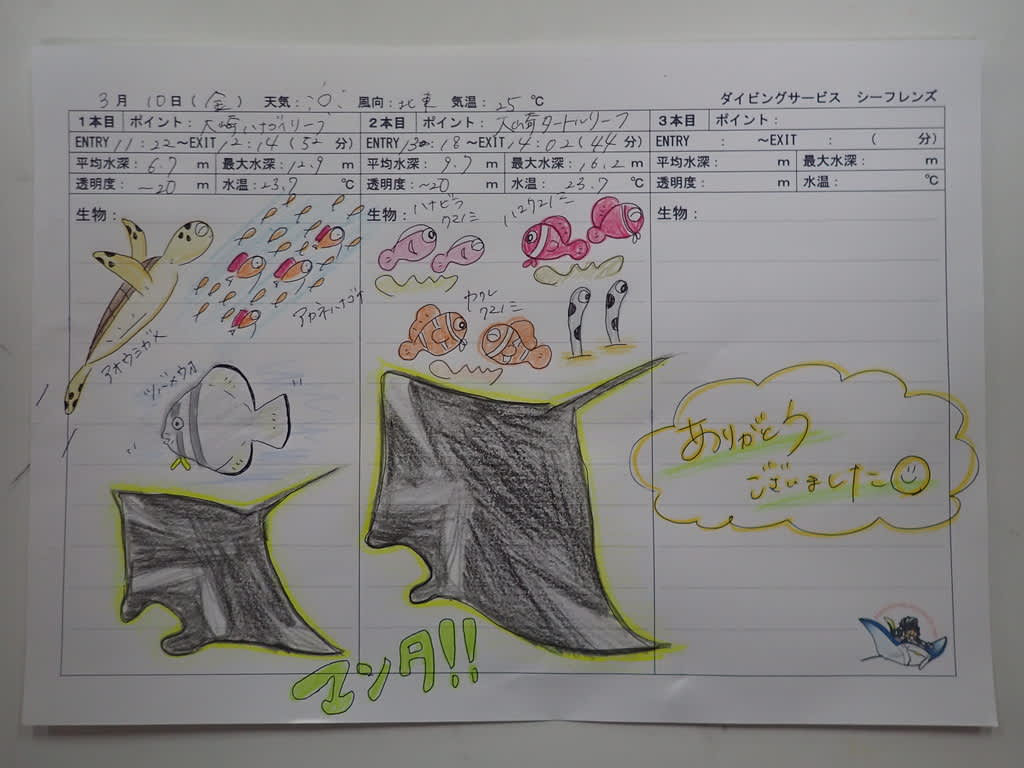 3月 10日(金) 天気: 風向:北東 気温:25℃ ダイビングサービス シーフレンズ
1本目 ポイント:大崎ハナゴイリーフ 2本目 ポイント:大崎タートルリーフ 3本目 ポイント:
ENTRY 11:22~EXIT 12:14(52分) ENTRY 13:18~EXIT 14:02(44分) ENTRY : ~EXIT : ( 分)
平均水深:6.7 m 最大水深:12.9 m 平均水深:9.7 m 最大水深:16.2 m 平均水深: m 最大水深: m
透明度:~20 m 水温:23.7 ℃ 透明度:~20 m 水温:23.7 ℃ 透明度: m 水温: ℃
生物: 生物: 生物:
ハナビラ
クマノミ
ハマクマノミ
アカネハナゴイ
カクレ
クマノミ
アオウミガメ
ツバメウオ
ありがとう
ございました
マンタ!!